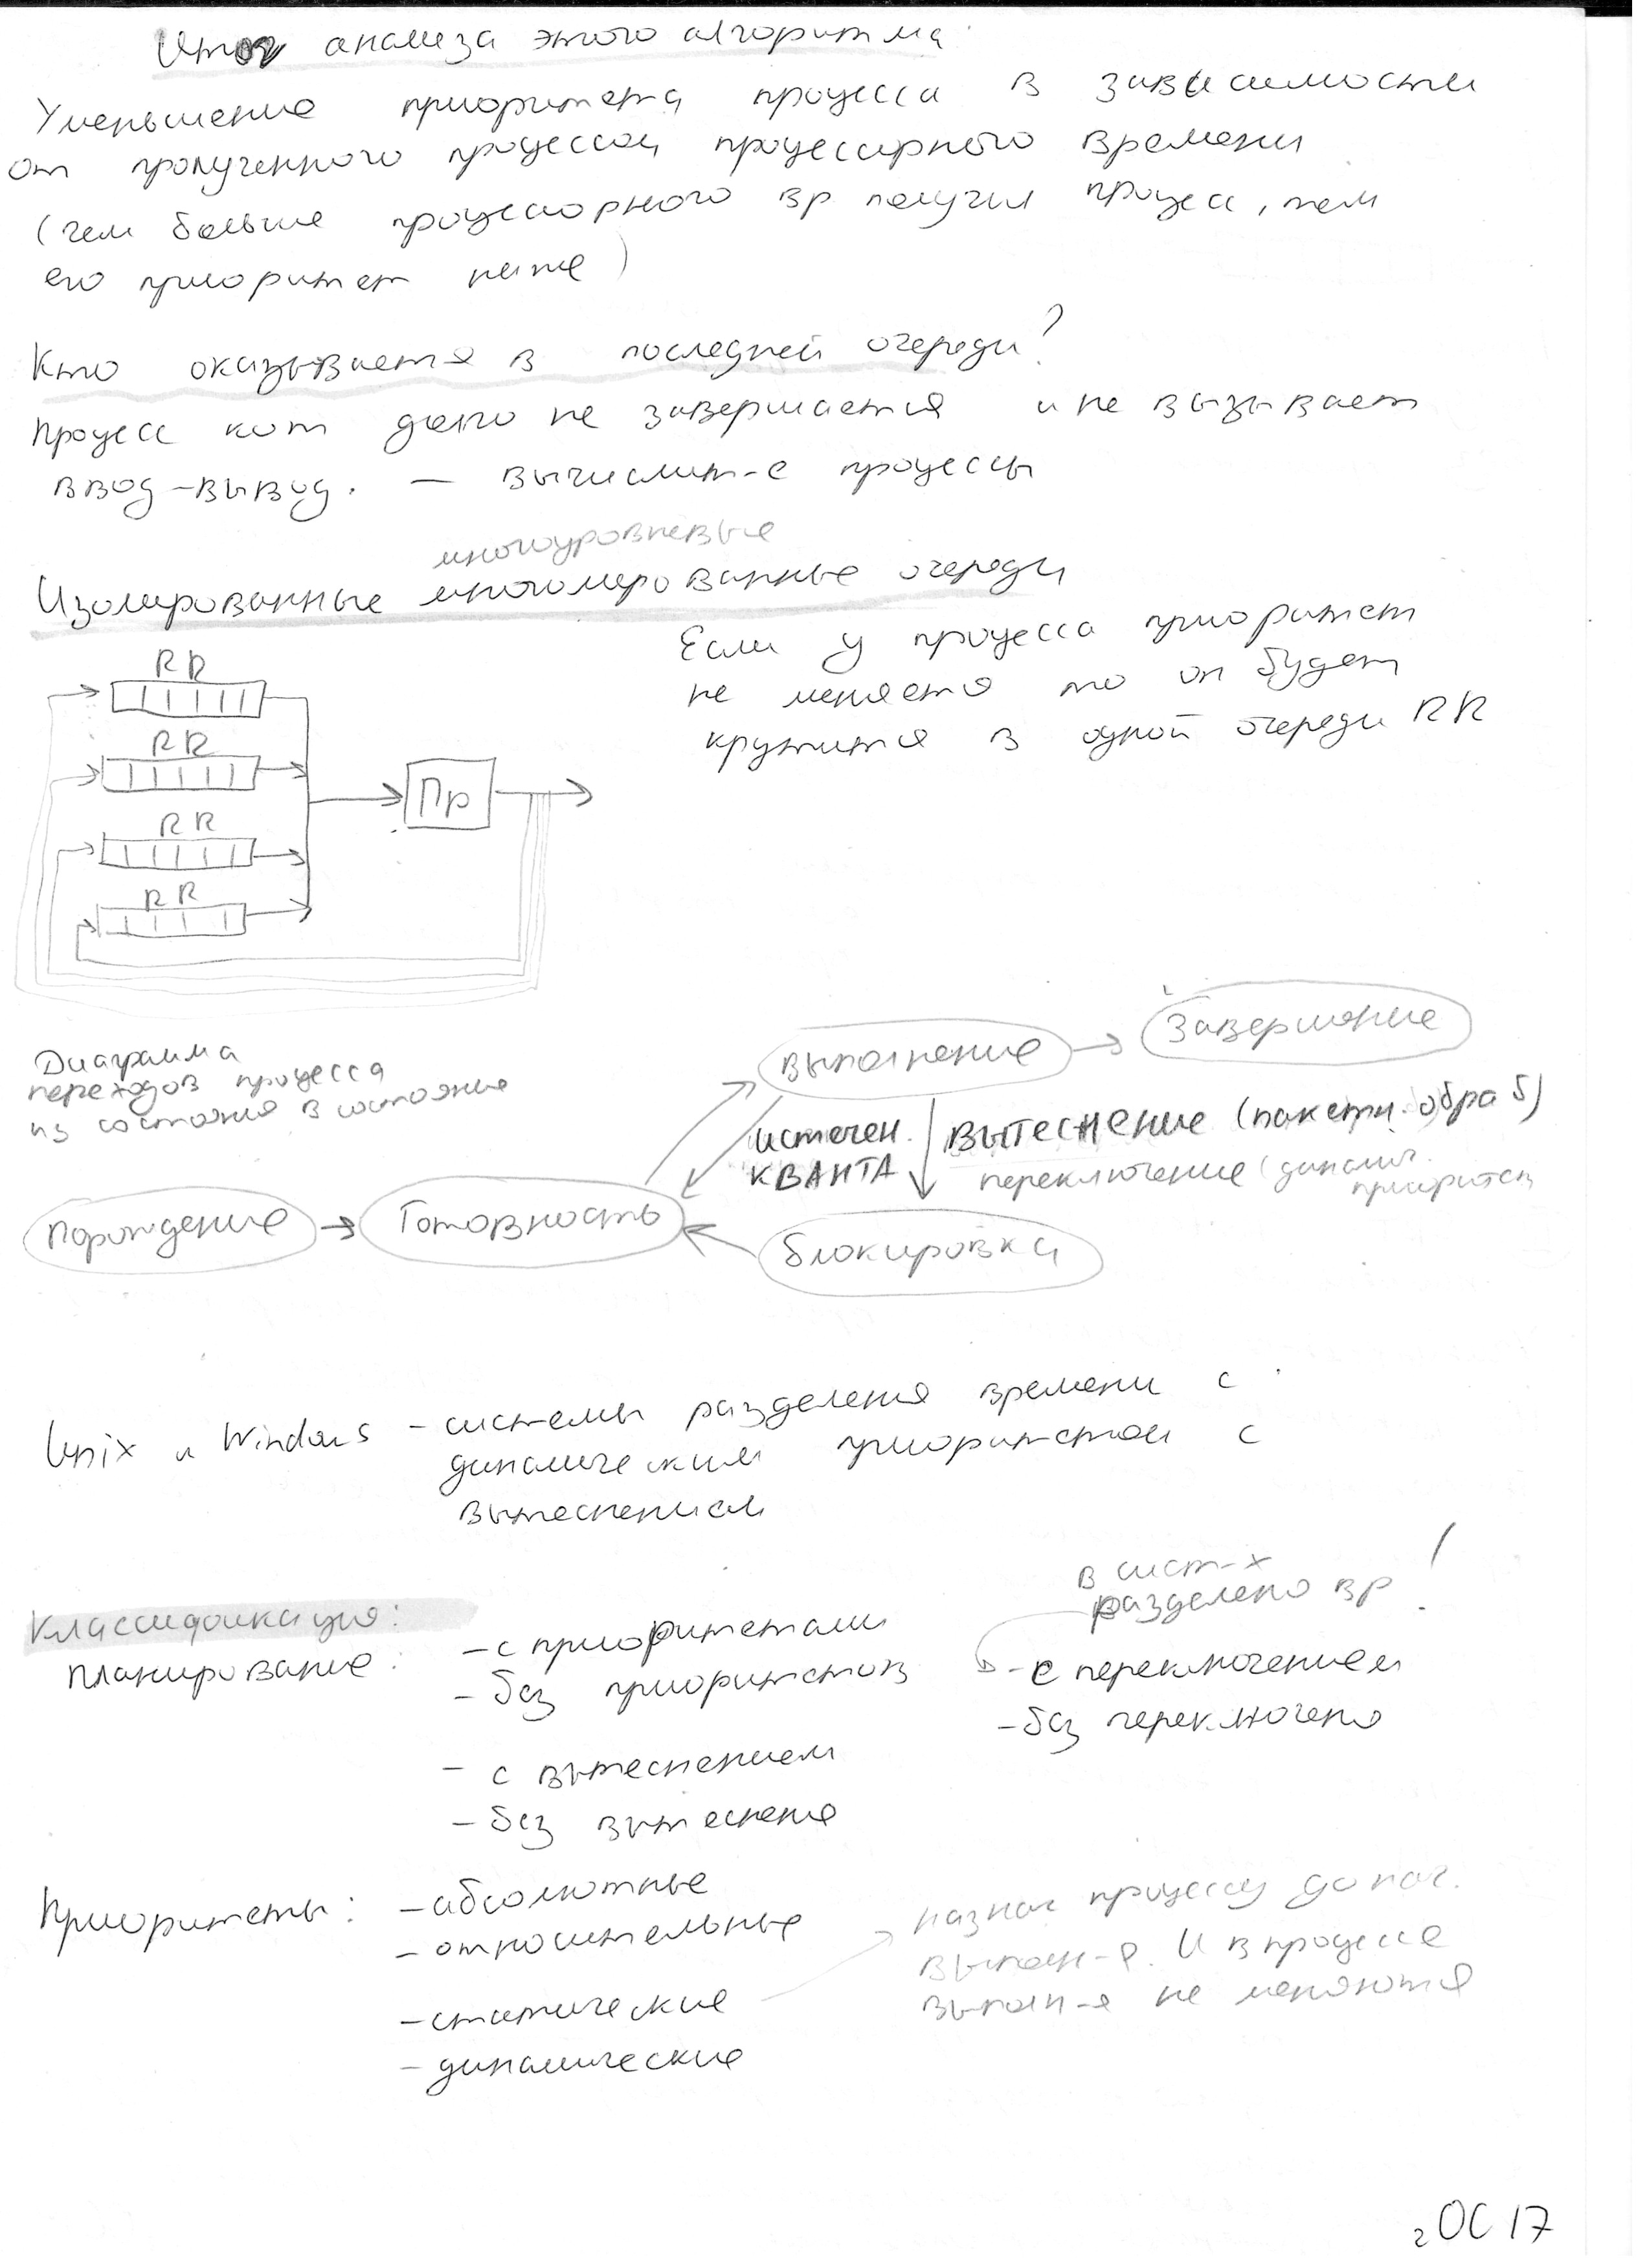 Итог анализа этого алгоритма
Уменьшение приоритета процесса в зависимости
от полученного процессом процессорного времени
(чем больше процессорного вр получил процесс, тем
его приоритет ниже)
Кто оказывается в последней очереди?
Процесс кот долго не завершается и не вызывает
ввод-вывод. — вычислит-е процессы
многоуровневые
Изолированные очереди
Если у процесса приоритет
не меняется то он будет
крутится в одной очереди RR
RR
RR
RR
RR
Пр
Диаграмма
переходов процесса
из состояния в состояние
Выполнение
Завершение
истечен.
КВАНТА
ВЫТЕСНЕНИЕ (пакетн. обраб)
переключение (динамич.
приоритет
Порождение
Готовность
блокировка
Unix и Windows - системы разделения времени с
динамическим приоритетом с
вытеснением
Классификация:
Планирование:
- с приоритетами
- без приоритетов
- с вытеснением
- без вытеснения
в сист-х
разделения вр !
- с переключением
- без переключения
Приоритеты:
- абсолютные
- относительные
- статические
- динамические
назнач процессу до нач.
выполн-я. И в процессе
выполн-я не меняются
2 ОС 17